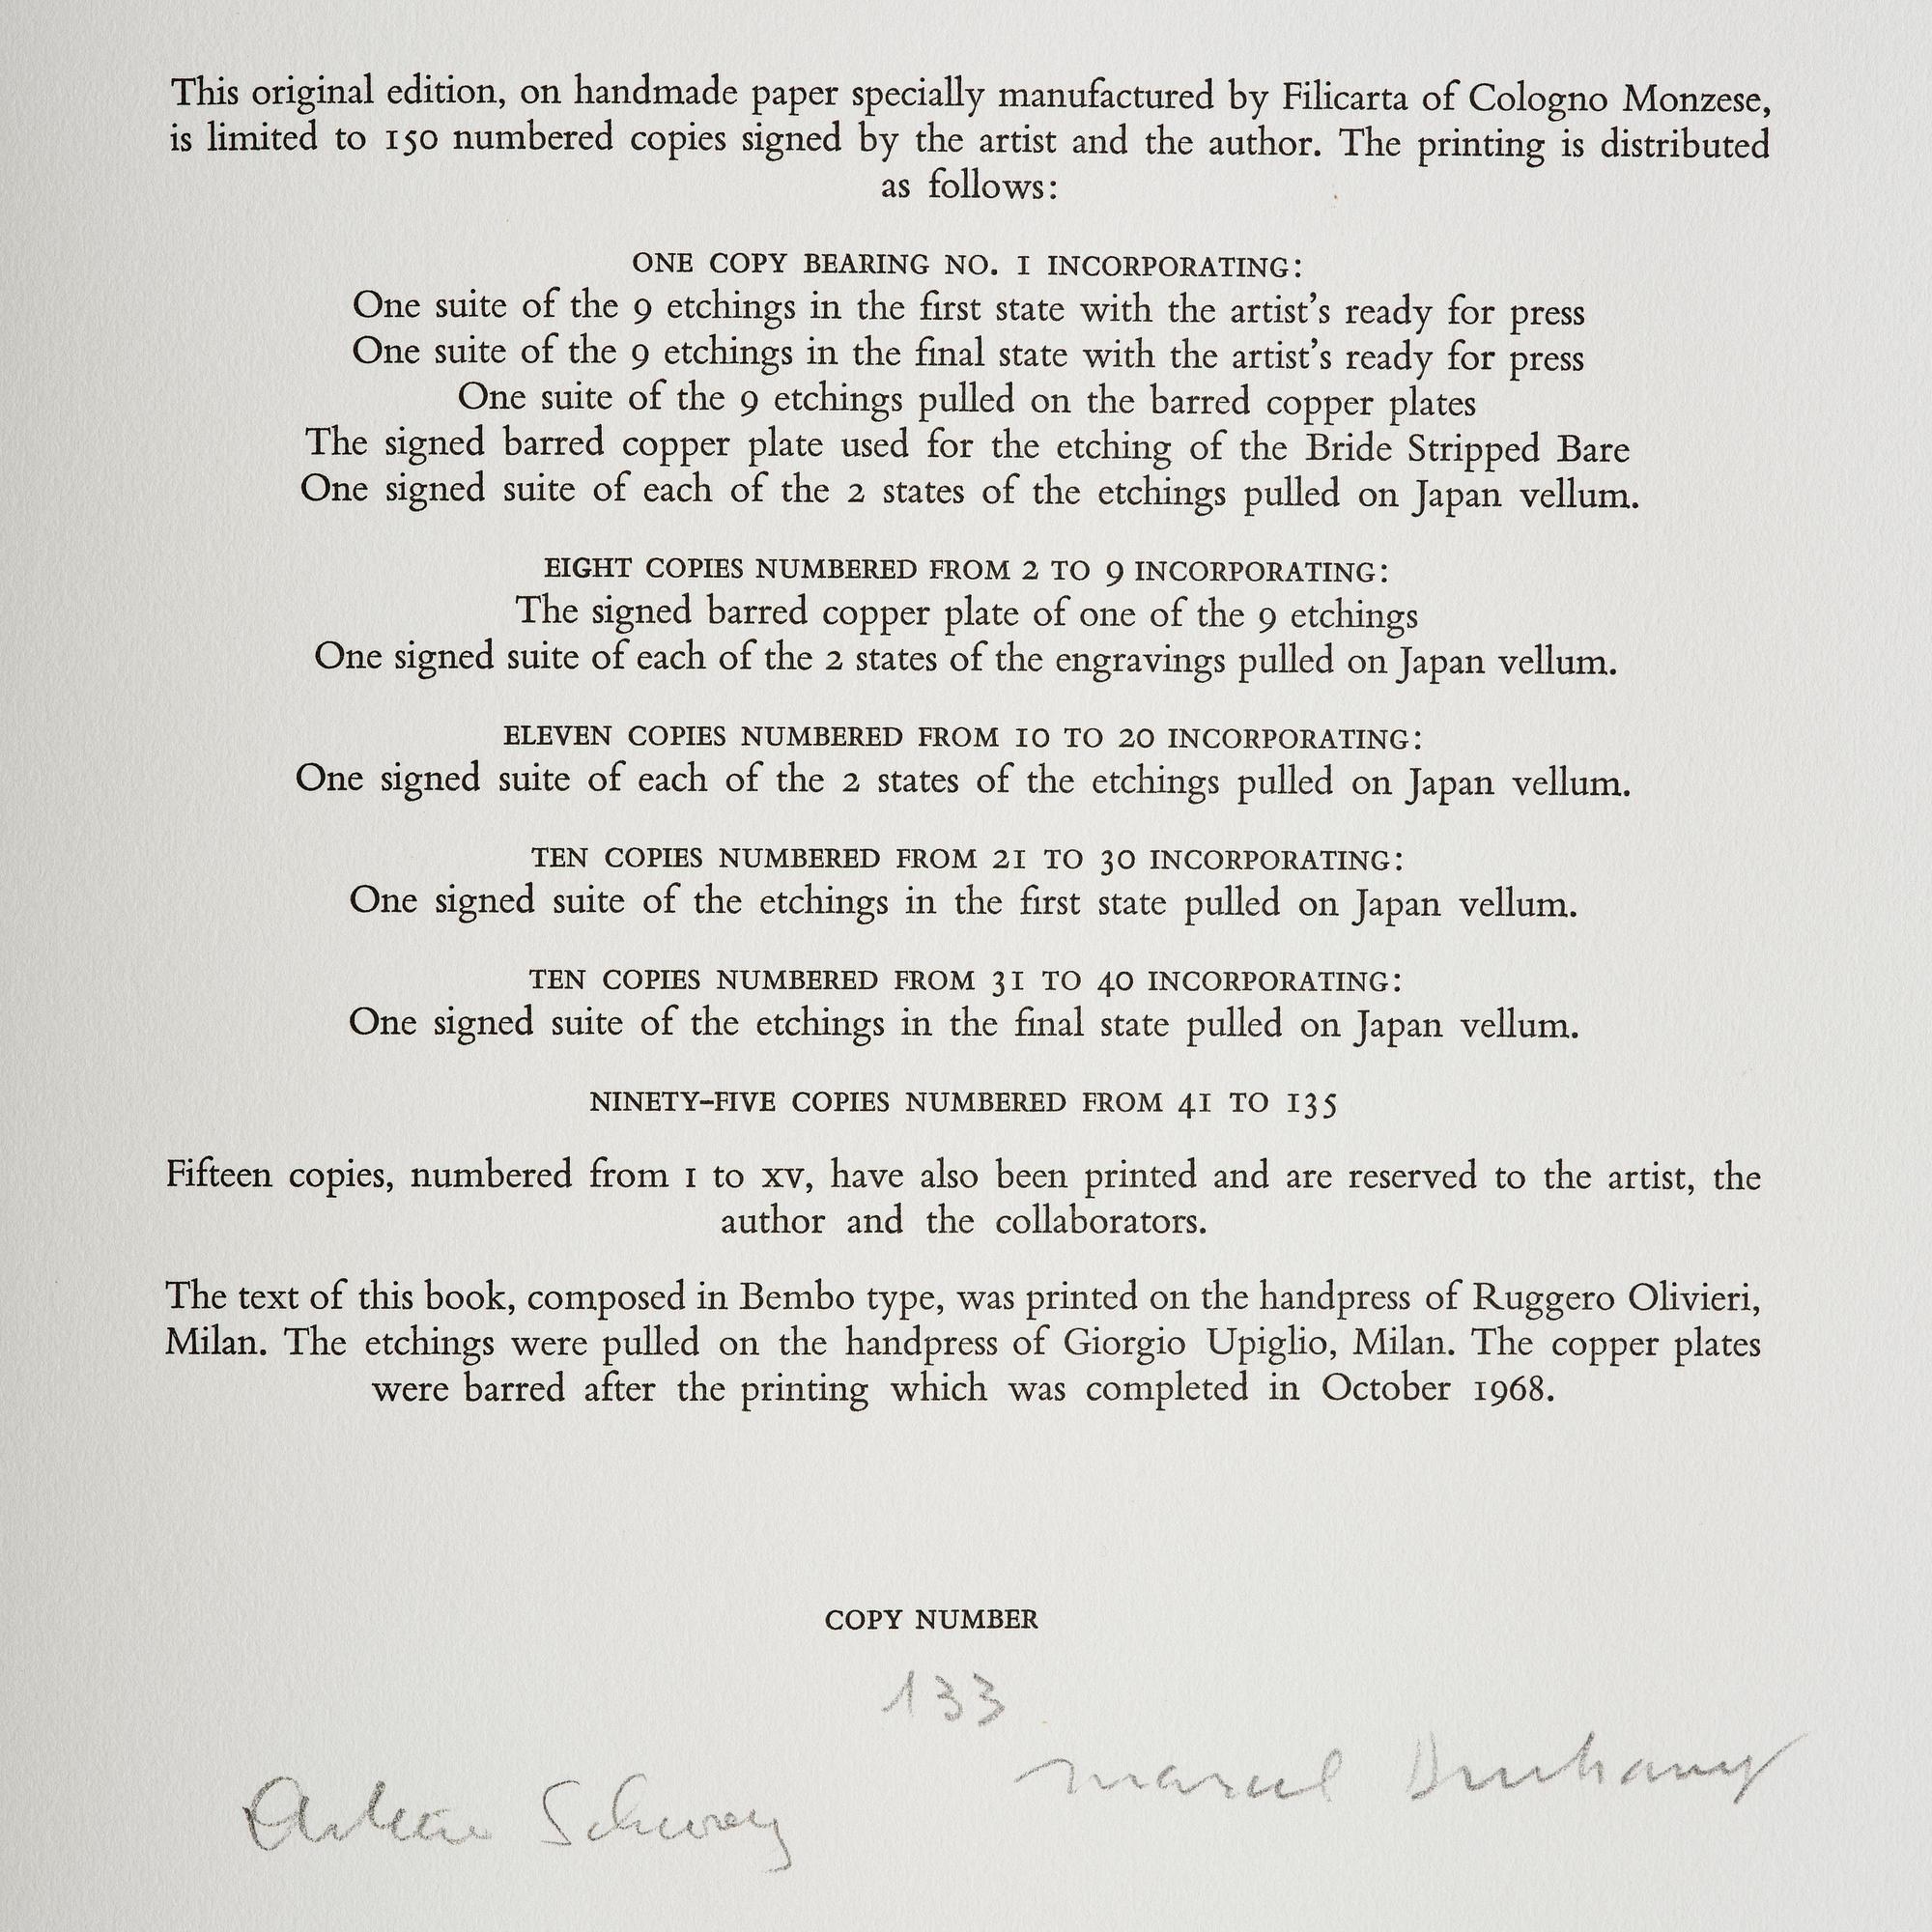 This original edition, on handmade paper specially manufactured by Filicarta of Cologno Monzese,
is limited to 150 numbered copies signed by the artist and the author. The printing is distributed
as follows:
ONE COPY BEARING NO. 1 INCORPORATING:
One suite of the 9 etchings in the first state with the artist's ready for press
One suite of the 9 etchings in the final state with the artist's ready for press
One suite of the 9 etchings pulled on the barred copper plates
The signed barred copper plate used for the etching of the Bride Stripped Bare
One signed suite of each of the 2 states of the etchings pulled on Japan vellum.
EIGHT COPIES NUMBERED FROM 2 TO 9 INCORPORATING:
The signed barred copper plate of one of the 9 etchings
One signed suite of each of the 2 states of the engravings pulled on Japan vellum.
ELEVEN COPIES NUMBERED FROM 10 TO 20 INCORPORATING:
One signed suite of each of the 2 states of the etchings pulled on Japan vellum.
TEN COPIES NUMBERED FROM 21 TO 30 INCORPORATING:
One signed suite of the etchings in the first state pulled on Japan vellum.
TEN COPIES NUMBERED FROM 31 TO 40 INCORPORATING:
One signed suite of the etchings in the final state pulled on Japan vellum.
NINETY-FIVE COPIES NUMBERED FROM 41 TO 135
Fifteen copies, numbered from I to XV, have also been printed and are reserved to the artist, the
author and the collaborators.
The text of this book, composed in Bembo type, was printed on the handpress of Ruggero Olivieri,
Milan. The etchings were pulled on the handpress of Giorgio Upiglio, Milan. The copper plates
were barred after the printing which was completed in October 1968.
COPY NUMBER
133
Marcel Duchamp
Arturo Schwarz